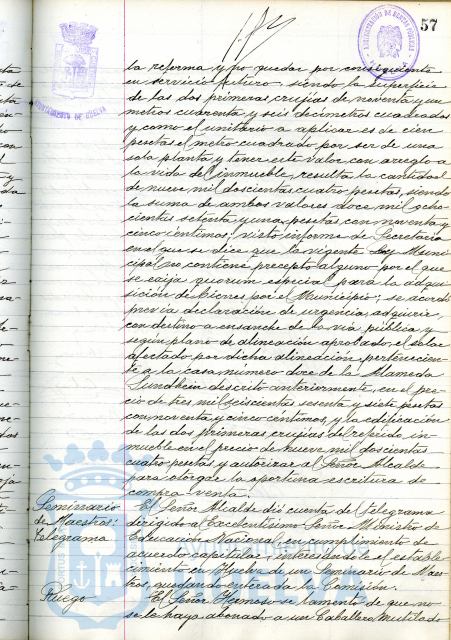 57
AYUNTAMIENTO DE HUELVA
la reforma y no quedar por consiguiente
en servicio futuro, siendo la superficie
de las dos primeras crujías de noventa y un
metros cuarenta y seis decímetros cuadrados
y como el unitario a aplicar es de cien
pesetas el metro cuadrado por ser de una
sola planta y tener este valor con arreglo a
la vida del inmueble, resulta la cantidad
de nueve mil doscientas cuatro pesetas, siendo
la suma de ambos valores doce mil ocho
cientas setenta y una pesetas con noventa y
cinco céntimos; visto informe de Secretaría
en el que se dice que la vigente Ley Muni-
cipal no contiene precepto alguno por el que
se exija quorum especial para la adqui-
sición de bienes por el Municipio; se acordó
previa declaración de urgencia adquirir,
con destino a ensanche de la vía pública y
según plano de alineación aprobado, el solar
afectado por dicha alineación pertenecien-
te a la casa número doce de la Alameda
Sundheim descrito anteriormente, en el pre-
cio de tres mil seiscientas sesenta y siete pesetas
con noventa y cinco céntimos, y la edificación
de las dos primeras crujías del referido in-
mueble en el precio de nueve mil doscientas
cuatro pesetas y autorizar al Señor Alcalde
para otorgar la oportuna escritura de
compra venta.
Seminario
de Maestros:
telegrama
El Señor Alcalde dió cuenta del telegrama
dirigido al Excelentísimo Señor Ministro de
Educación Nacional, en cumplimiento de
acuerdo capitular, interesándole el estable
cimiento en Huelva de un Seminario de Maes-
tros, quedando enterada la Comisión.
Ruego
El Señor Hermoso se lamentó de que no
se le haya abonado a un Caballero Mutilado